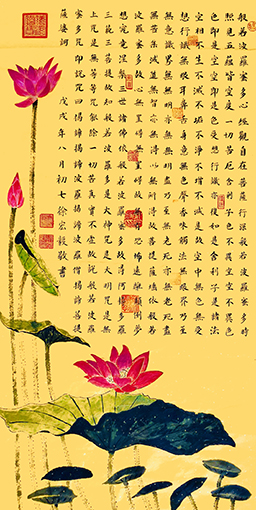 般若波羅蜜多心經觀自在菩薩行深般若波羅蜜多時
照見五蘊皆空度一切苦厄舍利子色不異空空不異色
色即是空空即是色受想行識亦復如是舍利子是諸法
空相不生不滅不垢不淨不增不減是故空中無色無受
想行識無眼耳鼻舌身意無色聲香味觸法無眼界乃至
無意識界無無明亦無無明盡乃至無老死亦無老死盡
無苦集滅道無智亦無得以無所得故菩提薩埵依般若
波羅蜜多故心無罣礙無罣礙故無有恐怖遠離顛倒夢
想究竟涅槃三世諸佛依般若波羅蜜多故得阿耨多羅
三藐三菩提故知般若波羅蜜多是大神咒是大明咒是無
上咒是無等等咒能除一切苦真實不虛故說般若波羅
蜜多咒即說咒曰揭諦揭諦波羅揭諦波羅僧揭諦菩提
薩婆訶 戊戌年八月初七徐宏毅敬書